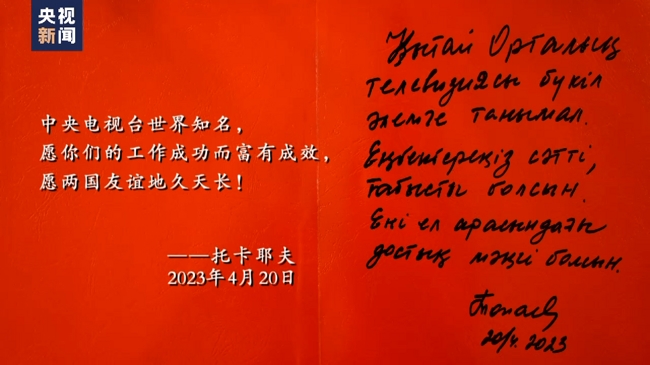 央视
新闻
中央电视台世界知名，
愿你们的工作成功而富有成效，
愿两国友谊地久天长！
——托卡耶夫
2023年4月20日
Қытай Орталық
телевизиясы бүкіл
әлемге танымал.
Еңбектереңіз сәтті,
табысты болсын.
Екі ел арасындағы
достық мәңгі болсын.
20/4. 2023